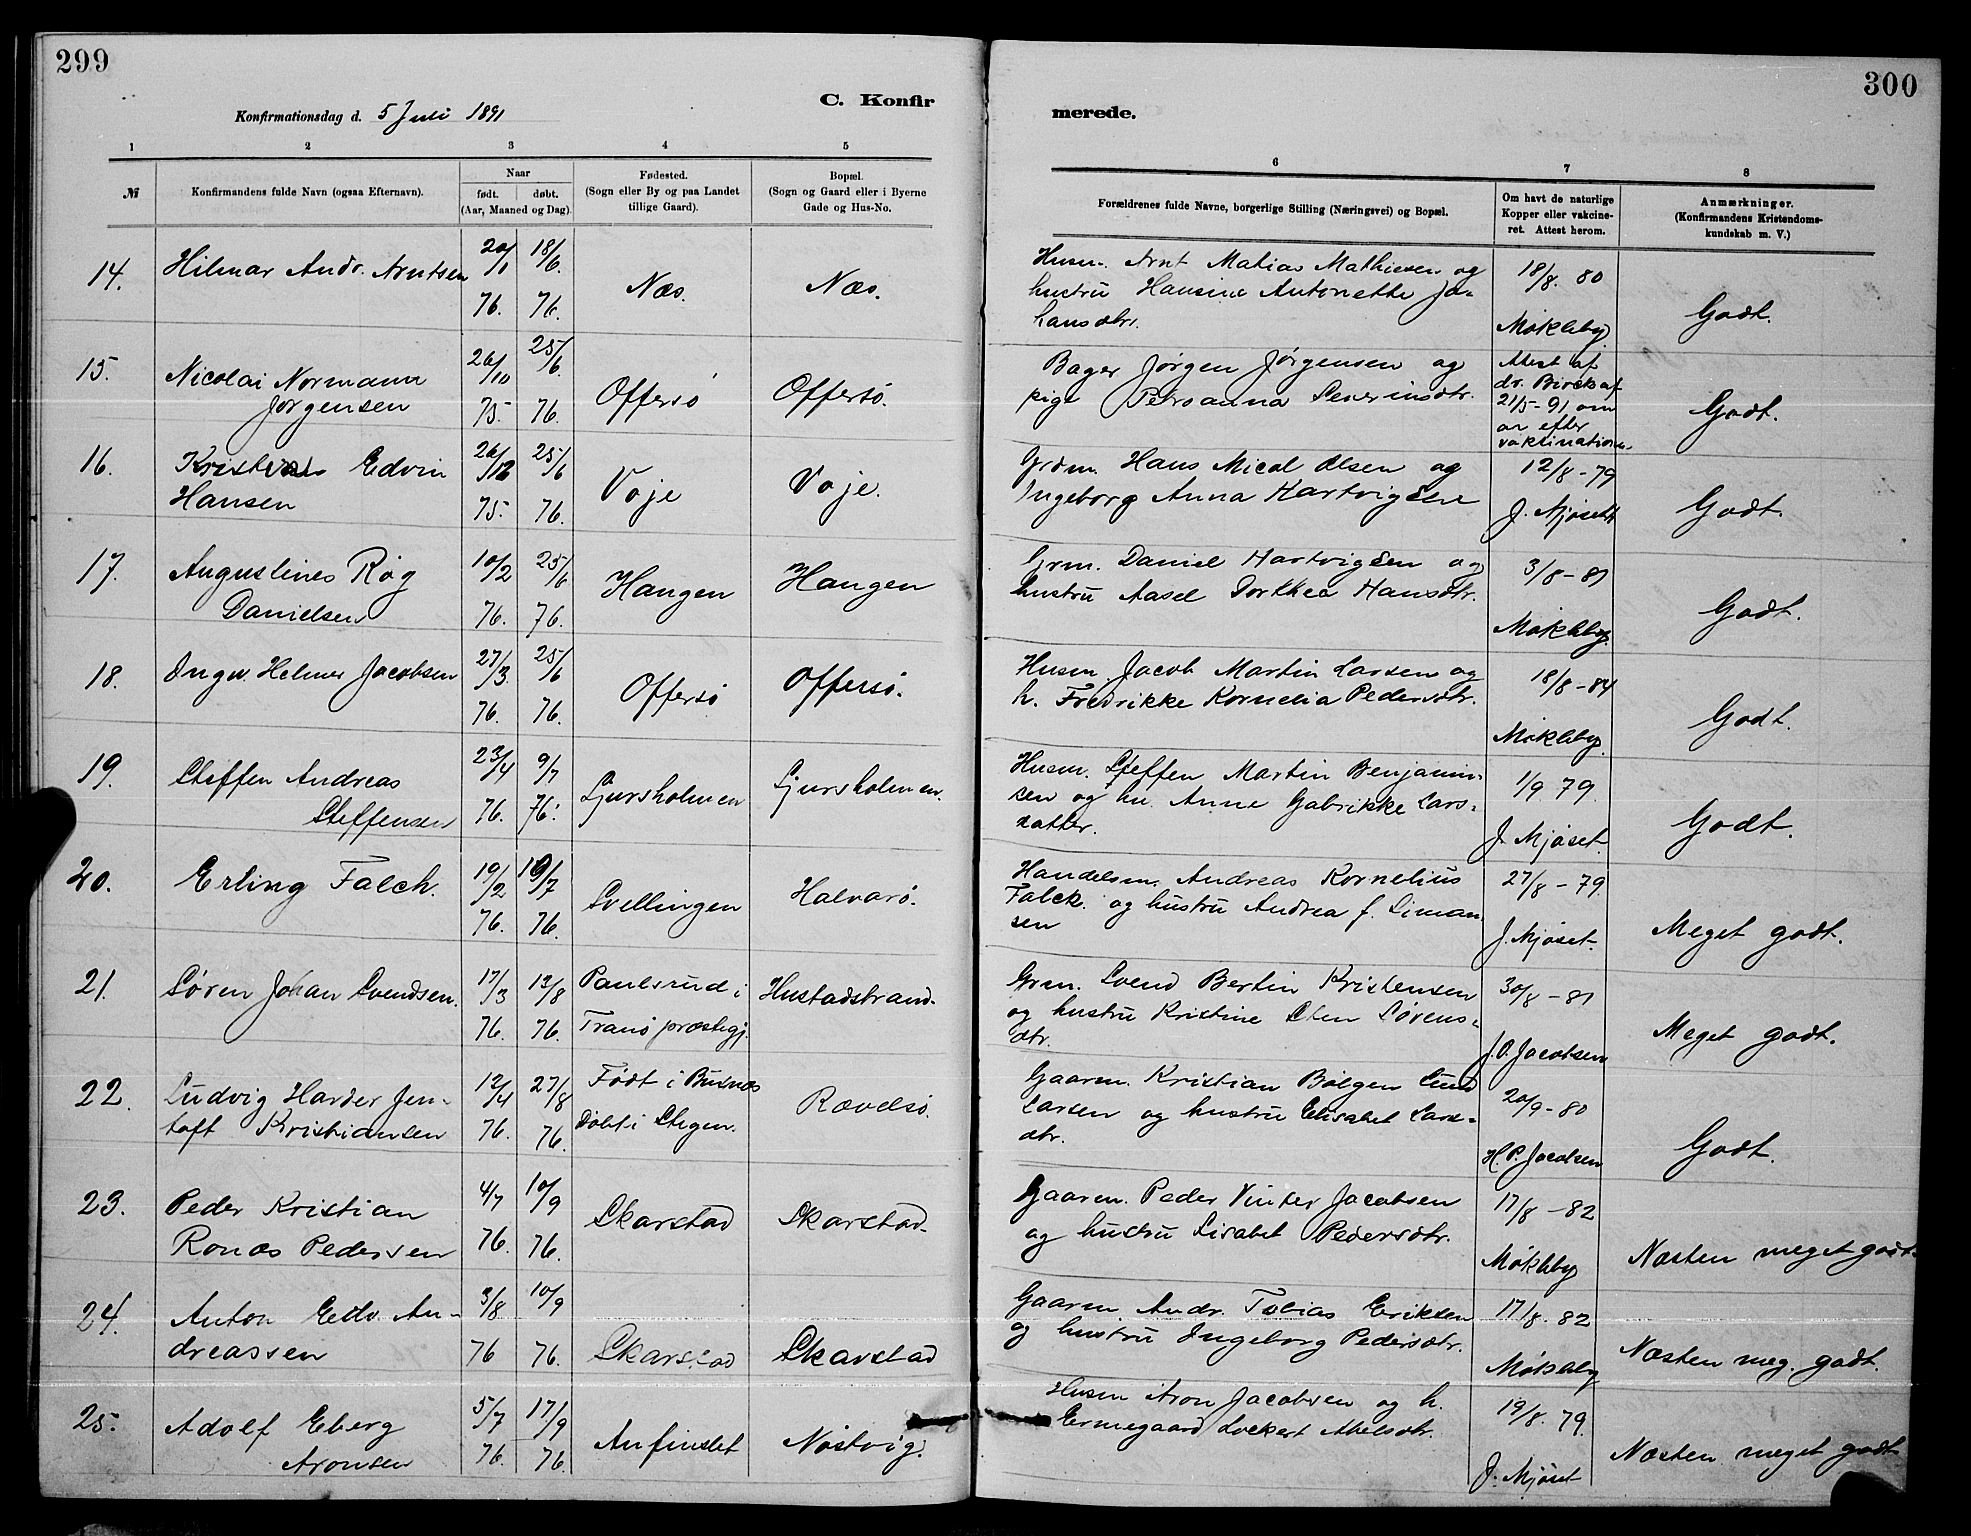 299
C. Konfir
Konfirmationsdag d. 5 Juli 1891
1 2 3 4 5
№
Konfirmandens fulde Navn (ogsaa Efternavn).
Naar
født. døbt.
(Aar, Maaned og Dag).
Fødested.
(Sogn eller By og paa Landet
tillige Gaard).
Bopæl.
(Sogn og Gaard eller i Byerne
Gade og Hus-No.
14. Hilmar Andr. Arntsen 20/1 76. 18/6. 76. Næs. Næs.
15. Nicolai Normann
Jørgensen 26/10 75. 25/6. 76. Offersø Offersø.
16. Edvin
Hansen 26/12 75. 25/6 76. Voje Voje.
17. Augustines Røg
Danielsen 10/2 76. 25/6 76. Hangen Hangen
18. Ingv. Helmer Jacobsen 27/3. 76. 25/6 76. Offersø Offersø.
19. Steffen Andreas
Steffensen 23/4 76. 9/7 76. Ljursholmen Ljursholmen.
20. Erling Falch. 19/2 76. /7 76. Svellingen Halvarø.
21. Søren Johan Svendsen. 17/3 76. 13/8 76. Paulsrud i
Tranø præstegj. Hustadstrand.
22. Ludvig Harder Jen-
toft Kristiansen 12/4 76. 27/8 76. Født i Buxnæs
Døbt i Stegen. Rævelsø.
23. Peder Kristian
Ronæs Pedersen 4/7 76. 10/9 76. Skarstad Skarstad.
24. Anton Edv. An-
dreassen 3/8 76 10/9 76. Skarstad Skarstad
25. Adolf Eberg
Aronsen 5/7 76. 17/9 76. Anfindet Nøstvig.
300
merede.
6 7 8
Forældrenes fulde Navne, borgerlige Stilling (Næringsvei) og Bopæl.
Om havt de naturlige
Kopper eller vakcine-
ret. Attest herom.
Anmærkninger.
(Konfirmandens Kristendoms-
kundskab m. V.)
Husm. Arnt Matias Mathiesen og
hustru Hansine Antonette Jo-
hansdtr. 18/8. 80
Møkleby. Godt.
Bager Jørgen Jørgensen og
pige Peroanna Severinsdtr. Attest af
dr. Birck af
21/5-91 om
ar efter
vaktination. Godt.
Grdm. Hans Micol Olsen og
Ingeborg Anna Hartvigsen 12/8-79
J. Mjøset Godt.
Grm. Daniel Hartvigsen og
hustru Aasel Dorthea Hansdtr. 3/8-81
Møkleby. Godt.
Husm Jacob Martin Larsen og
h. Fredrikke Kornelia Pedersdtr. 18/8-84
Møkleby. Godt.
Husm. Steffen Martin Benjamin-
sen og hu. Anne Gabrikke Lars-
datter. 1/9. 79.
J. Mjøset. Godt.
Handelsm. Andreas Kornelius
Falck. og hustru Andrea f. Siman-
sen 27/8-79.
J. Mjøset. Meget godt.
Grm. Svend Bertin Kristensen
og hustru Kristine Sten Sørens-
dtr. 30/8-81
J. O. Jacobsen Meget godt.
Gaarm. Kristian Bølgen Lund
Larsen og hustru Elisabet Lars-
dtr. 20/9-80
H. P. Jacobsen Godt.
Gaarm. Peder Vinter Jacobsen
og hustru Lisabet Pedersdtr. 17/8-82
Møkleby Næsten meget godt.
Gaarm Andr. Tobias Eriksen
og hustru Ingeborg Pedersdtr. 17/8. 82
Møkleby Næsten meg. godt.
Husm Aron Jacobsen og h.
Ermegaard Lockert Abelsdtr. 19/8. 79.
J. Mjøset Næsten meget godt